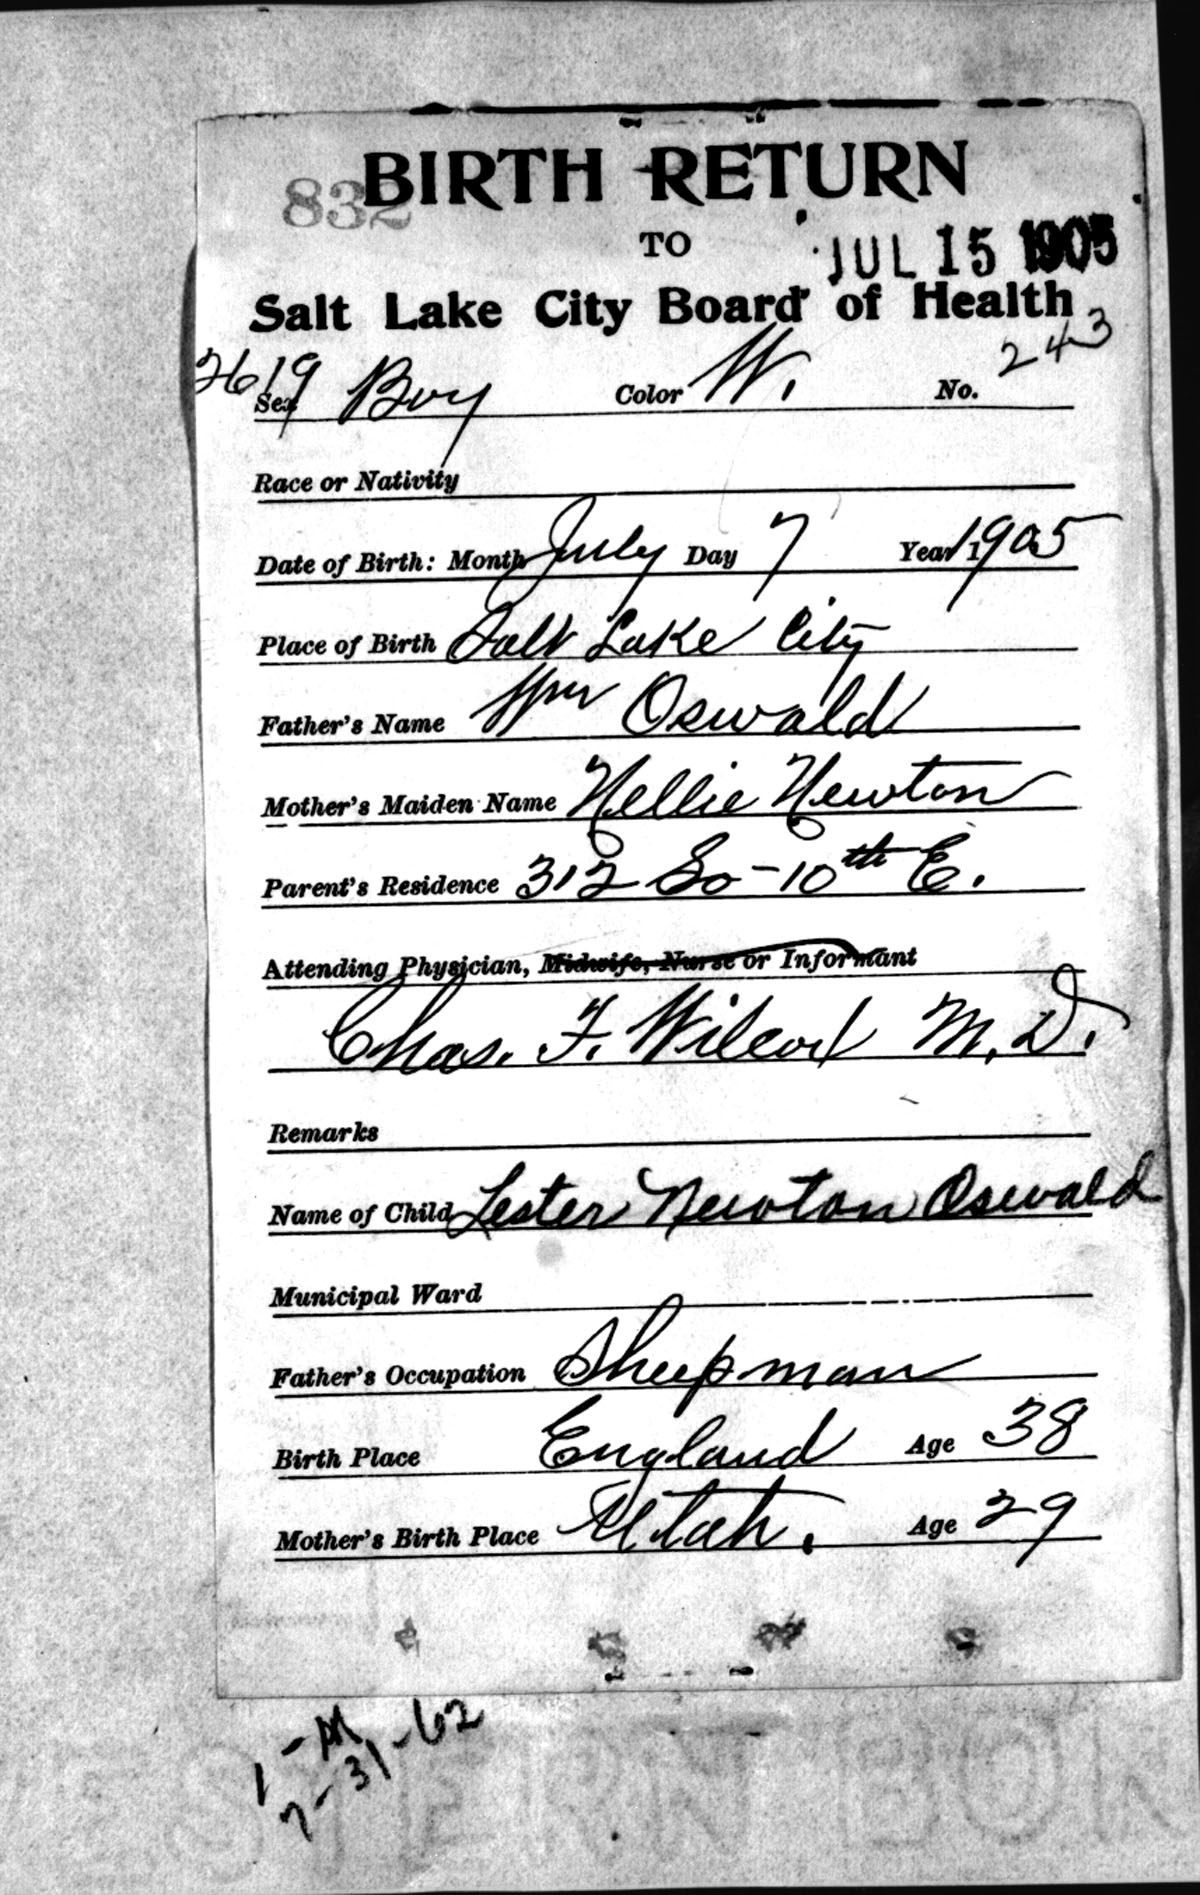 BIRTH RETURN
832
TO
JUL 15 1905
Salt Lake City Board of Health
2619
243
Sex Boy Color W. No.
Race or Nativity
Date of Birth: Month July Day 7 Year 1905
Place of Birth Salt Lake City
Father's Name Wm Oswald
Mother's Maiden Name Nellie Newton
Parent's Residence 312 So - 10th E.
Attending Physician, Midwife, Nurse or Informant
Chas. F. Wilcox M.D.
Remarks
Name of Child Lester Newton Oswald
Municipal Ward
Father's Occupation Sheepman
Birth Place England Age 38
Mother's Birth Place Utah. Age 29
1-M
7-31-62